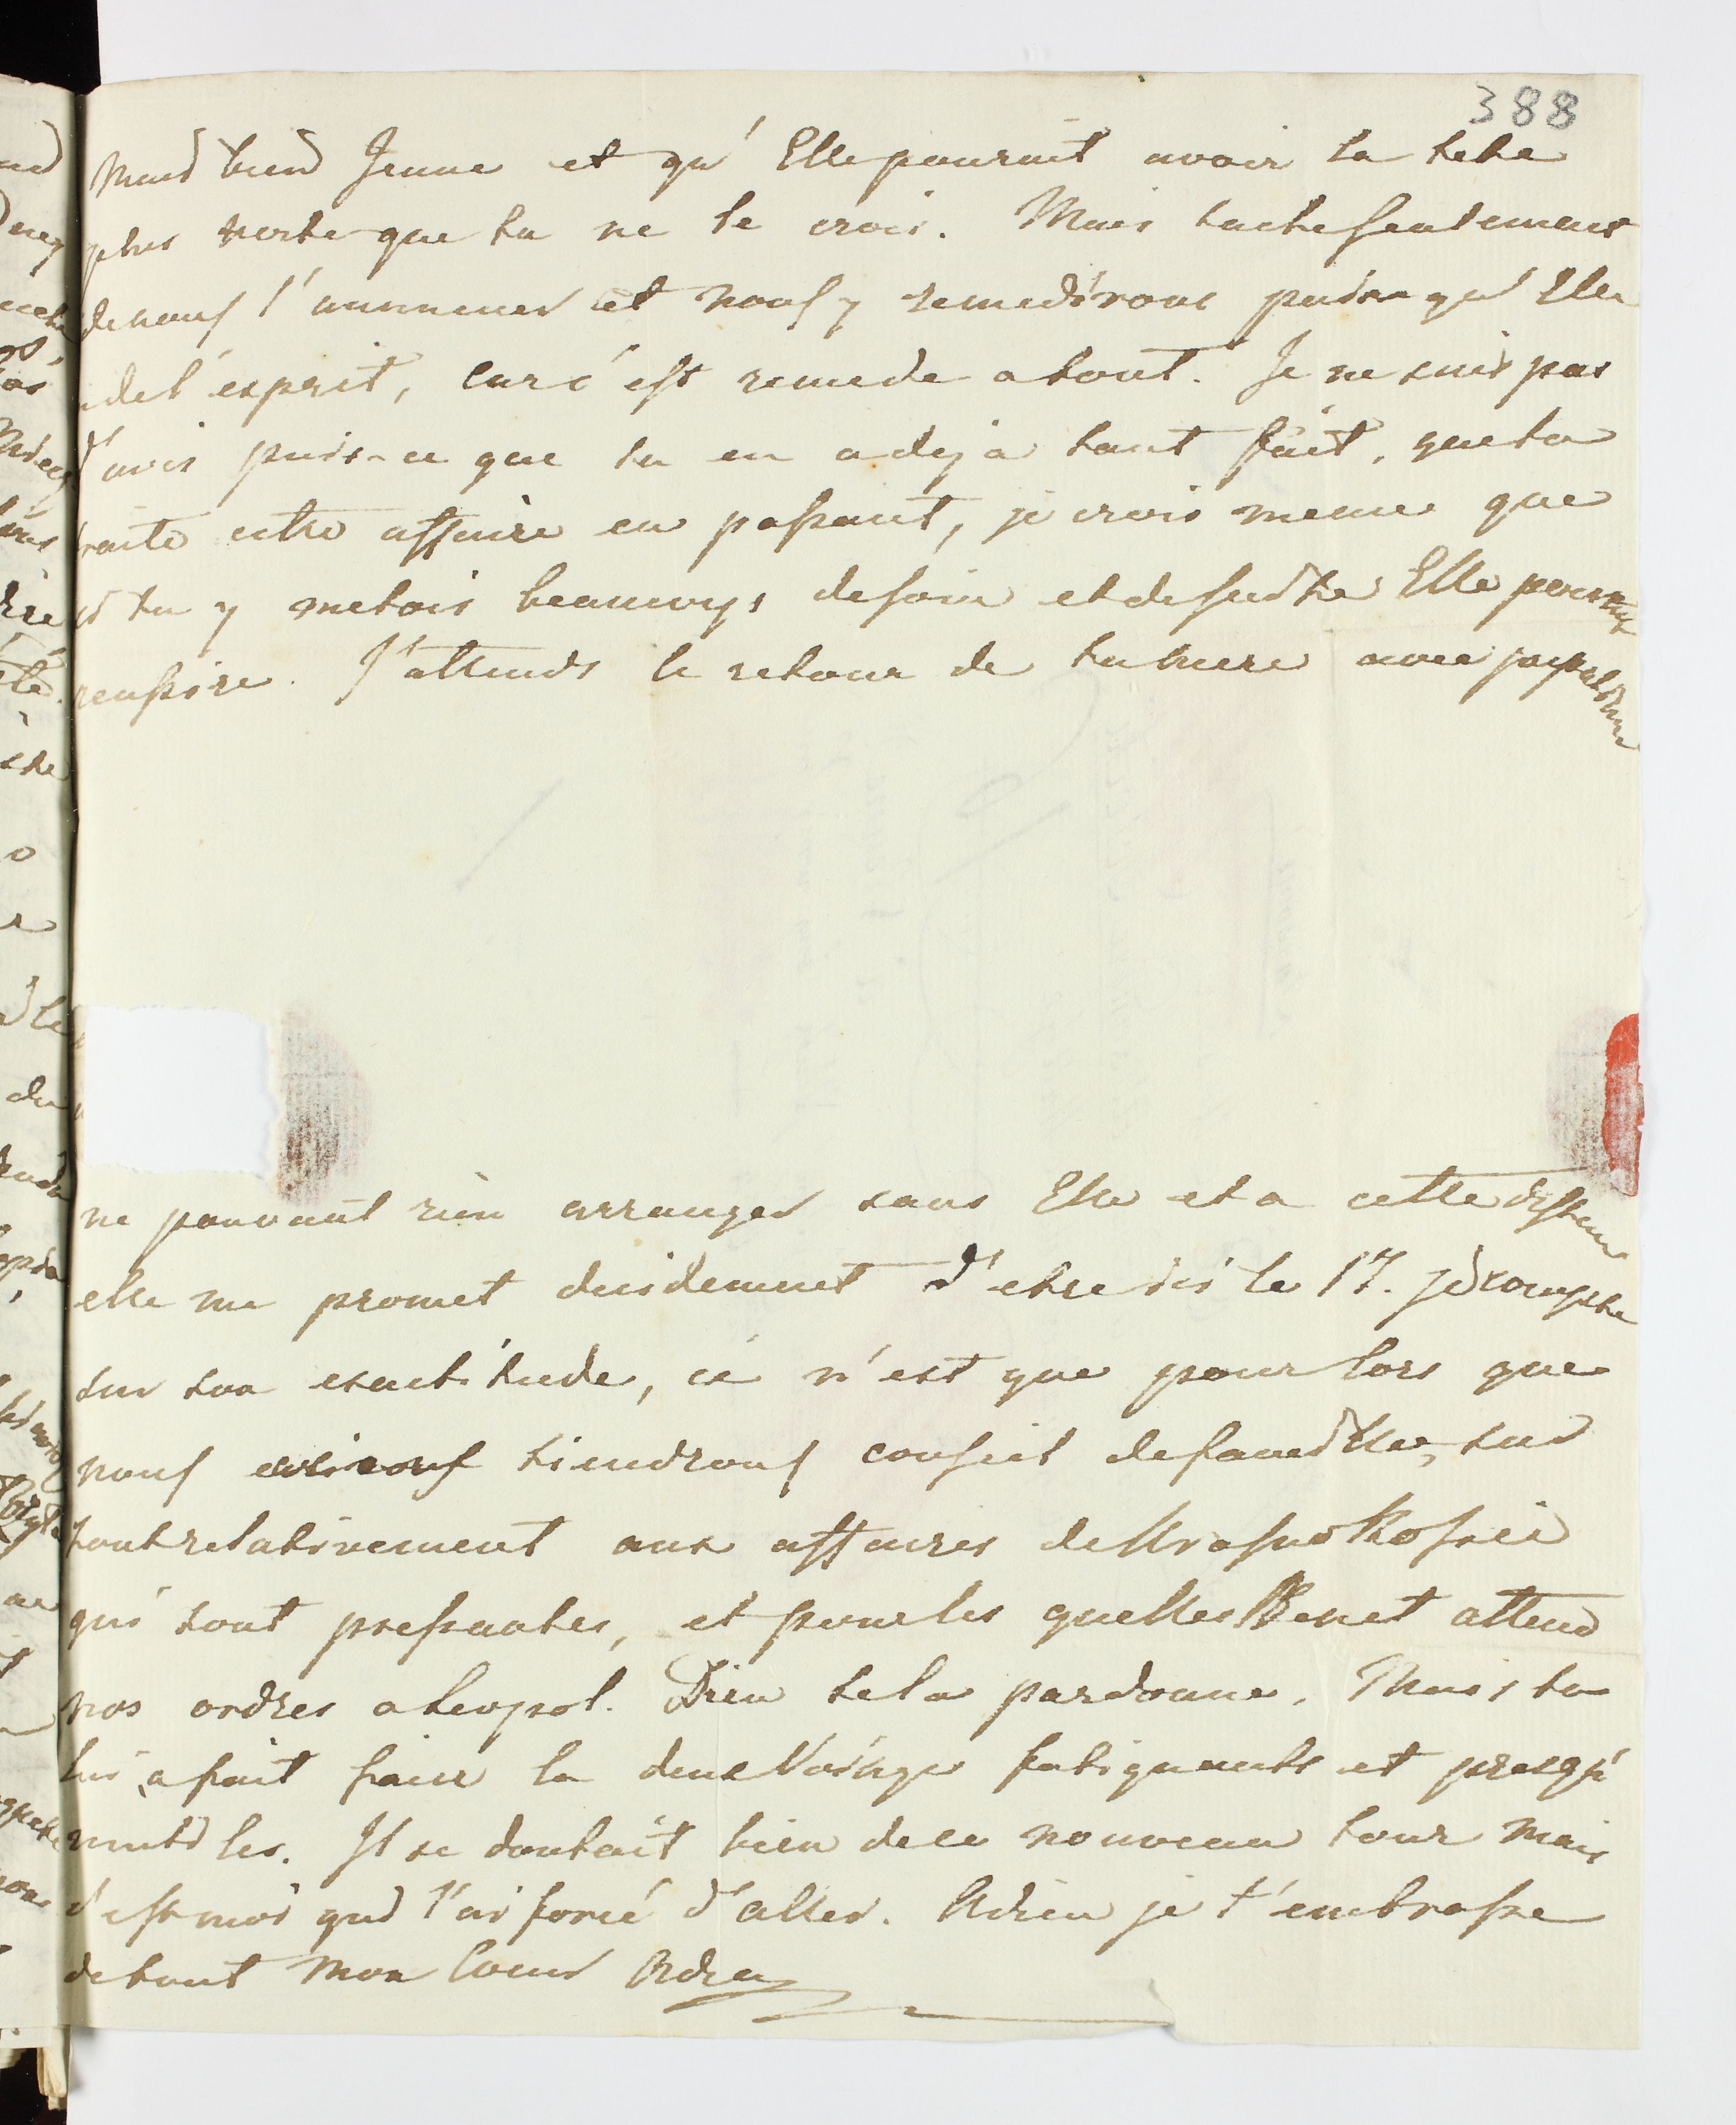 388
bien Jeune et qu'Elle pourait avoir la tete
plus verte que tu ne le crois. Mais tache seulement
de nous l'ammener et nous y remedirons puisqu'Elle
a de l'esprit, car c'est remede a tout. Je ne suis pas
d'avis puis-ce que tu en a deja tant fait, que tu
traite cette affaire en passant, je crois meme que
si tu y metois beaucoup de soin et de suite Elle pourrait
reussire. J'attends le retour de ta mere avec
ne pouvant rien arranger sans Elle et a cette distance
elle me promet decidement d'etre ici le 17. je compte
sur son exactitude, ce n'est que pour lors que
nous tiendrons conseil de famille, sur
tout relativement aux affaires de Krasnokosice
qui sont pressantes, et pour les quelles Benet attend
nos ordres a Leopol. Dieu te la pardonne. Mais tu
lui a fait faire la deux Voiage fatiguants et presqu'
inutiles. Il se doutait bien de ce nouveau tour mais
c'est moi qui l'ai forcé d'aller. Adieu je t'embrasse
de tout mon Coeur